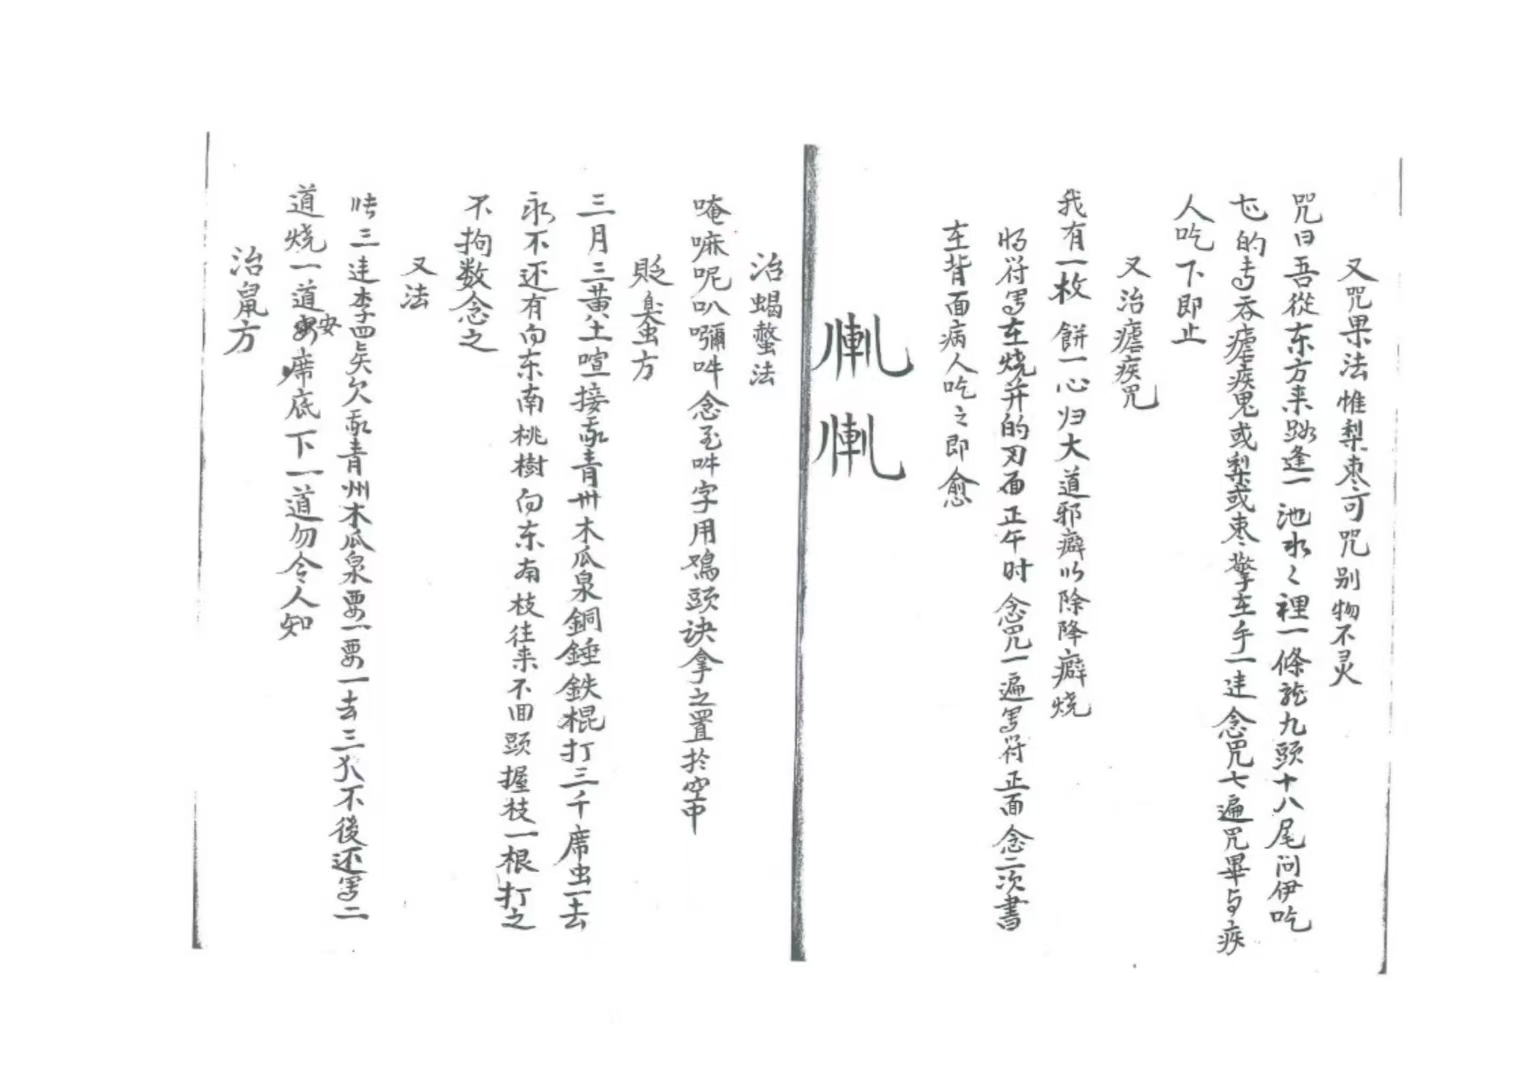 又咒果法惟梨枣可咒别物不灵
咒曰吾從东方来路逢一池水々裡一條龍九頭十八尾问伊吃
的吞瘧疾鬼或梨或枣擎在手一速念咒七遍咒畢与疾
人吃下即止
又治瘧疾咒
我有一枚餅一心归大道邪癖以除降癖烧
符写在烧并的刃面正午时念咒一遍写符正面念二次書
在背面病人吃之即愈
治蝎螫法
唵嘛呢叭嚩吽念至吽字用鴻頭诀拿之置於空中
貶臭虫方
三月三黄土喧接取青州木瓜泉銅錘鉄棍打三千席虫一去
永不还有向东南桃樹向东南枝往来不回頭握枝一根打之
不拘数念之
又法
张三速李四吴欠取青州木瓜泉要一要一去三不後还写二
道烧一道安席底下一道勿令人知
治鼠方